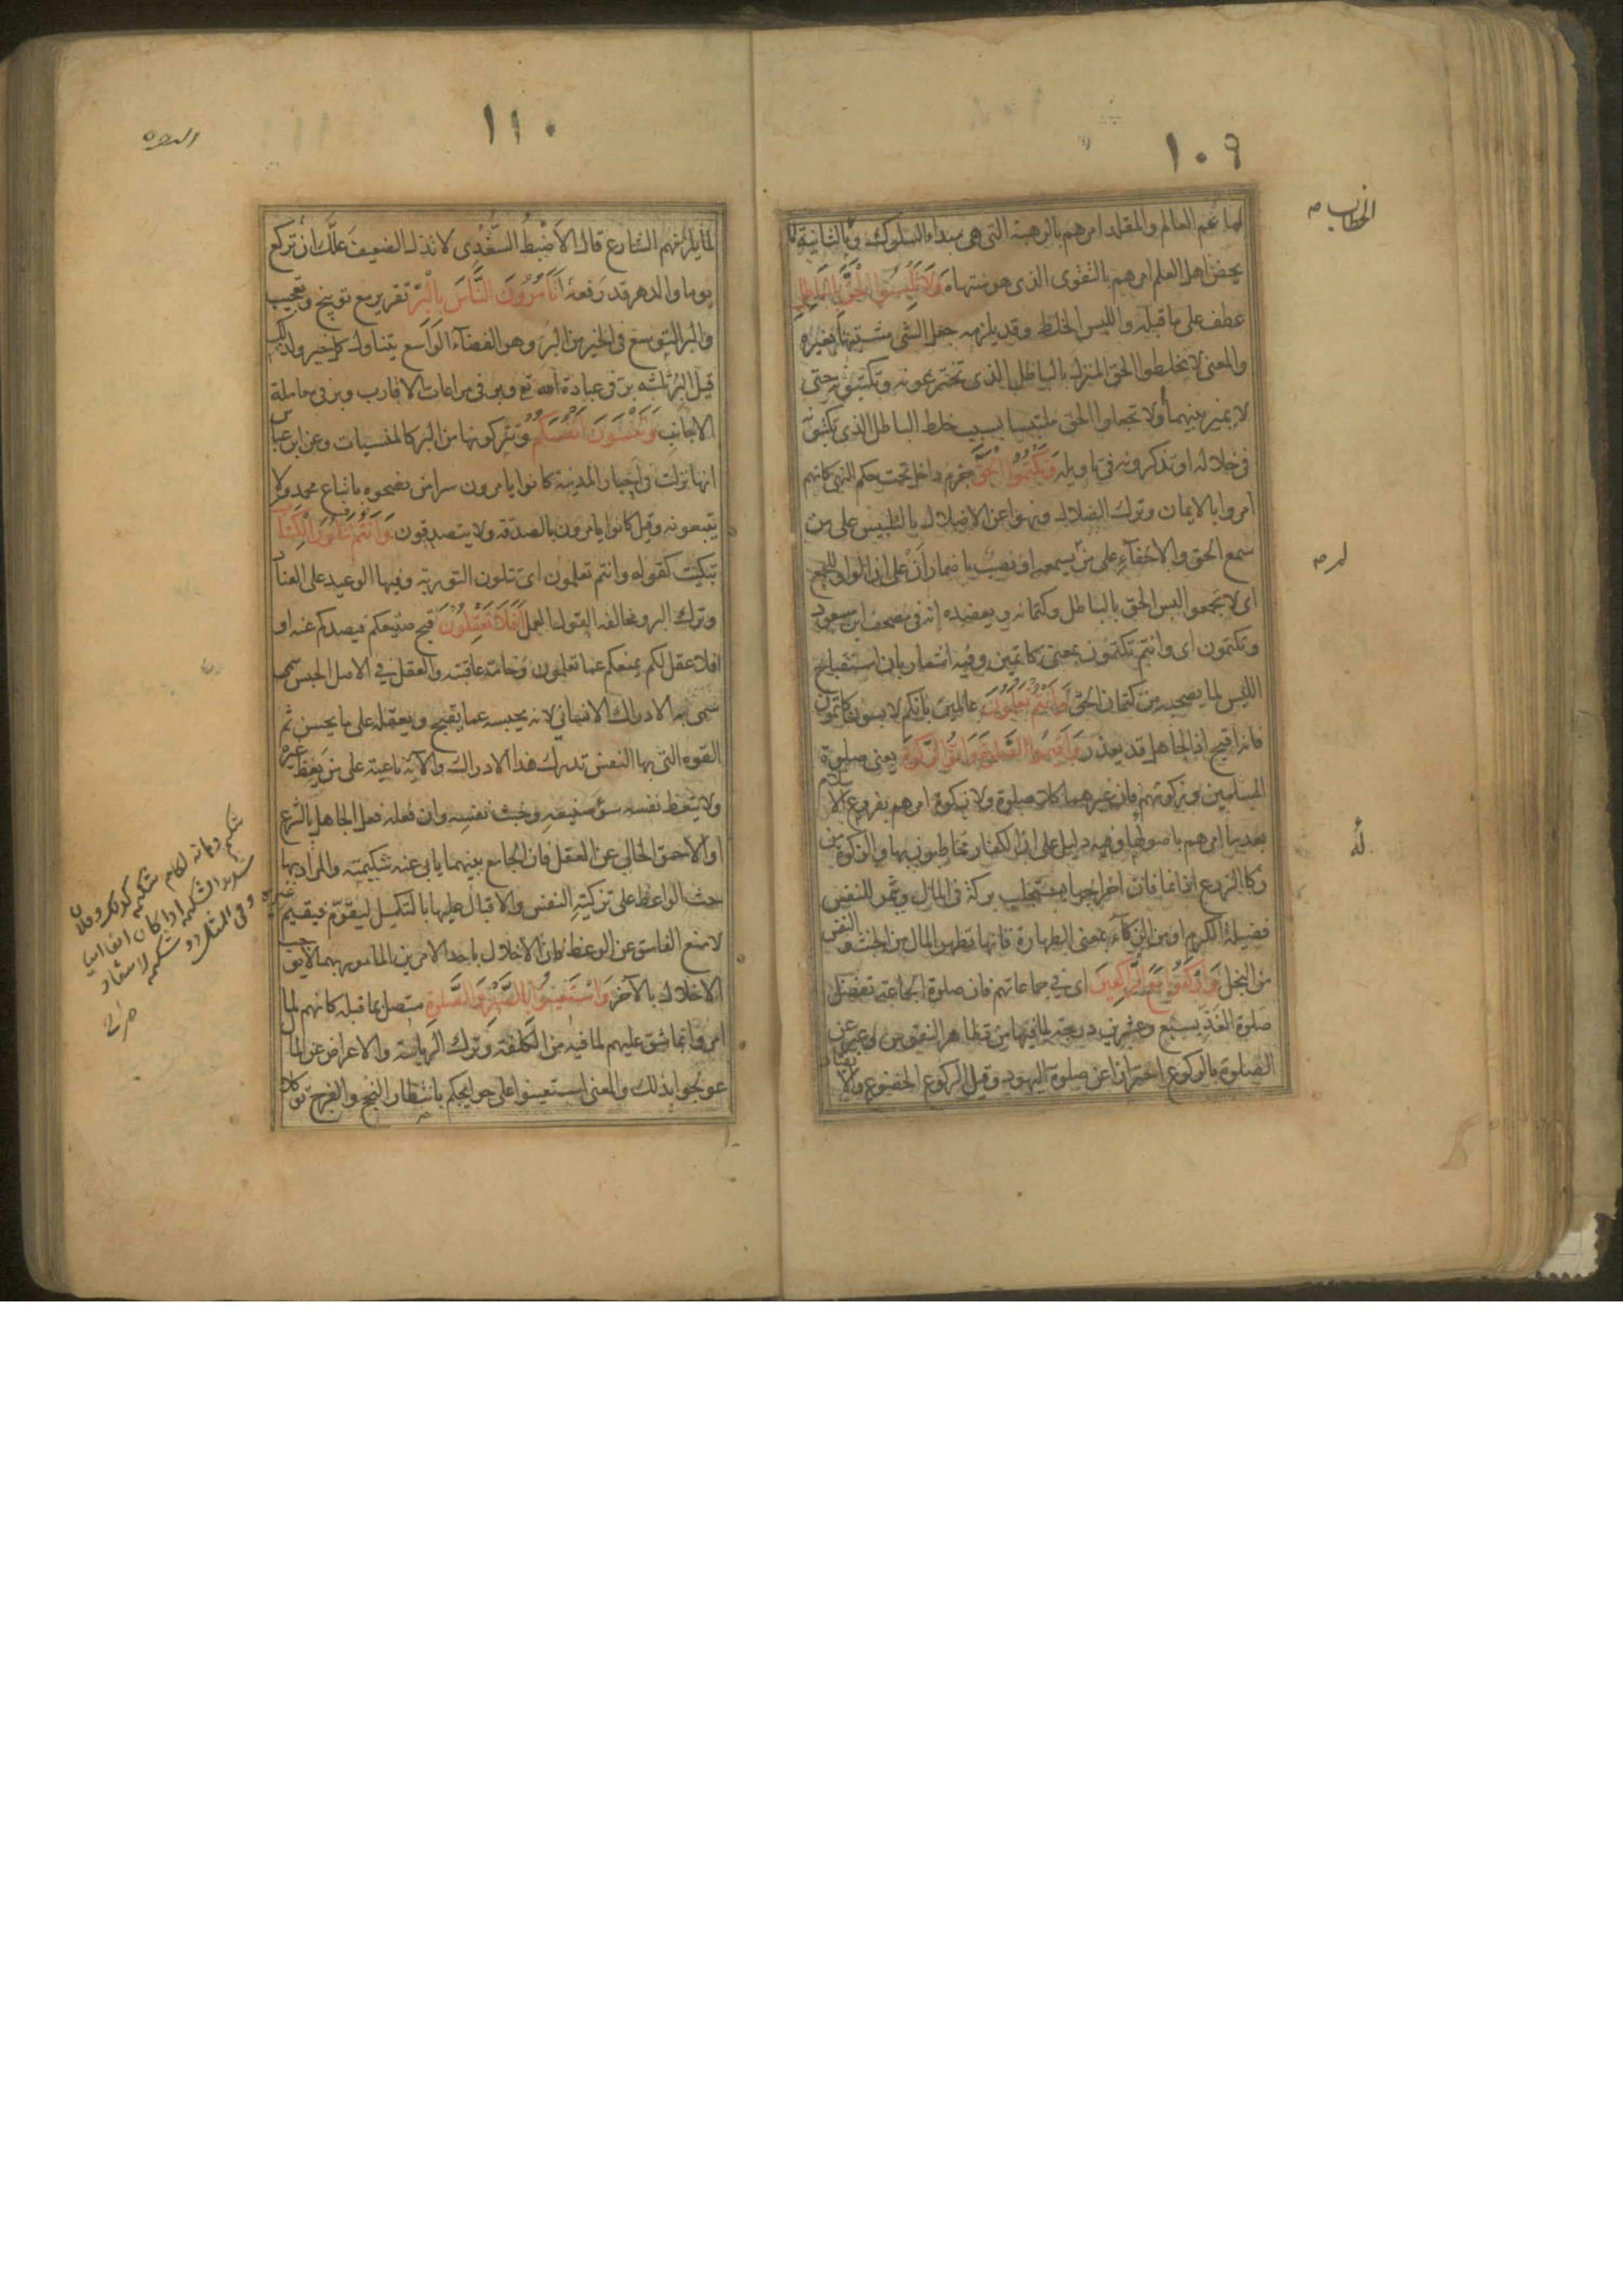 ١٠٩
الخطاب
لما عم العالم والمقلد امرهم بالرهبة التى هى مبداء السلوك وبالثانية لما
يخص اهل العلم امرهم بالتقوى الذى هو منتهاه وَلَا تَلْبِسُوا الْحَقَّ بِالْبَاطِلِ
عطف على ما قبله واللبس الخلط وقد يلزمه جعل الشى مشتبها بغيره
والمعنى لا تخلطوا الحق المنزل بالباطل الذى تخترعونه وتكتبونه حتى
لا يميز بينهما اولا تجعلوا الحق ملتبسا بسبب خلط الباطل الذى تكتبونه
فى خلاله او تذكرونه فى تاويله وَتَكْتُمُوا الْحَقَّ جزم داخل تحت حكم النهى كانهم
امروا بالايمان وترك الضلال ونهوا عن الاضلال بالتلبيس على من
سمع الحق والاخفاء على من لم يسمعه او نصب باضمار أن على ان الواو للجمع
اى لا تجمعوا لبس الحق بالباطل وكتمانه ويعضده انه فى مصحف ابن مسعود
وتكتمون اى وانتم تكتمون بمعنى كاتمين وفيه اشعار بان استقباح
اللبس لما يصحبه من كتمان الحق وَأَنْتُمْ تَعْلَمُونَ عالمين بانكم لابسون كاتمون
فانه اقبح اذ الجاهل قد يعذر وَأَقِيمُوا الصَّلوةَ وَآتُوا الزَّكوةَ يعنى صلوة
المسلمين وزكوتهم فان غيرهما كلا صلوة ولا زكوة امرهم بفروع الاسلام
بعد ما امرهم باصوله وفيه دليل على ان الكفار مخاطبون بها والزكوة من
زكا الزرع اذا نما فان اخراجها يستجلب بركة فى المال ويثمر للنفس
فضيلة الكرم او من الزكاء بمعنى الطهارة فانها تطهر المال من الخبث والنفس
من البخل وَارْكَعُوا مَعَ الرَّاكِعِينَ اى فى جماعاتهم فان صلوة الجماعة تفضل
صلوة الفذ بسبع وعشرين درجة لما فيها من تظاهر النفوس وعبر عن
الصلوة بالركوع احترازا عن صلوة اليهود وقيل الركوع الخضوع والانقياد
١١٠
لما يلزمهم الشارع قال الاضبط السعدى لا تذل الضعيف علّك ان تركع
يوما والدهر قد رفعه أَتَأْمُرُونَ النَّاسَ بِالْبِرِّ تقرير مع توبيخ وتعجيب
والبر التوسع فى الخير من البَر وهو الفضاء الواسع يتناول كل خير ولذلك
قيل البر ثلثه بر فى عبادة الله تع وبر فى مراعات الاقارب وبر فى معاملة
الاجانب وَتَنْسَوْنَ أَنْفُسَكُمْ وتتركونها من البر كالمنسيات وعن ابن عباس
انها نزلت فى احبار المدينة كانوا يامرون سرا من نصحوه باتباع محمد ولا
يتبعونه وقيل كانوا يامرون بالصدقه ولا يتصدقون وَأَنْتُمْ تَتْلُونَ الْكِتَابَ
تبكيت كقوله وانتم تعلمون اى تتلون التورية وفيها الوعيد على العناد
وترك البر ومخالفه القول العمل أَفَلَا تَعْقِلُونَ قبح صنيعكم فيصدكم عنه او
افلا عقل لكم يمنعكم عما تعلمون وخامة عاقبته والعقل فى الاصل الحبس
سمى به الادراك الانسانى لانه يحبسه عما يقبح ويعقله على ما يحسن ثم
القوه التى بها النفس تدرك هذا الادراك والاية ناعية على من يعظ غيره
ولا يتعظ نفسه سؤ صنيعه وخبث نفسه وان فعله فعل الجاهل بالشرع
او الاحمق الخالى عن العقل فان الجامع بينهما يابى عنه شكيمته والمراد بها
حث الواعظ على تزكية النفس والاقبال عليها بالتكميل ليقوّم فيقيم غيره
لا منع الفاسق عن الوعظ فان الاخلال باحد الامرين المامور بهما لا يوجب
الاخلال بالآخر وَاسْتَعِينُوا بِالصَّبْرِ وَالصَّلوةِ متصل بما قبله كانهم لما
امروا بما شق عليهم لما فيه من الكلفة وترك الرياسة والاعراض عن المال
عولجوا بذلك والمعنى استعينوا على حوايجكم بانتظار النجح والفرج توكلا